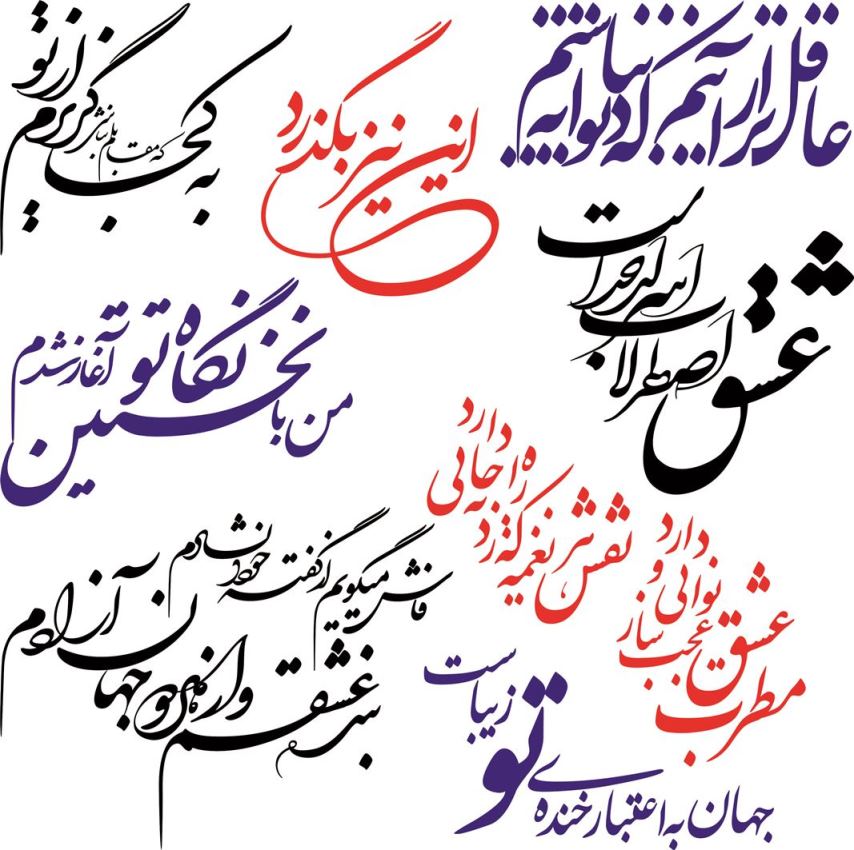 عاقل تر از آنیم که دیوانه نباشیم
این نیز بگذرد
به کجا گریزم از تو که مقابلم نباشی
عشق اصطرلاب اسرار خداست
من با نخستین نگاه تو آغاز شدم
مطرب عشق عجب ساز و نوایی دارد
نقش هر نغمه که زد ره به جایی دارد
فاش میگویم و از گفته خود دلشادم
بنده عشقم و از هر دو جهان آزادم
جهان به اعتبار خنده ی تو زیباست